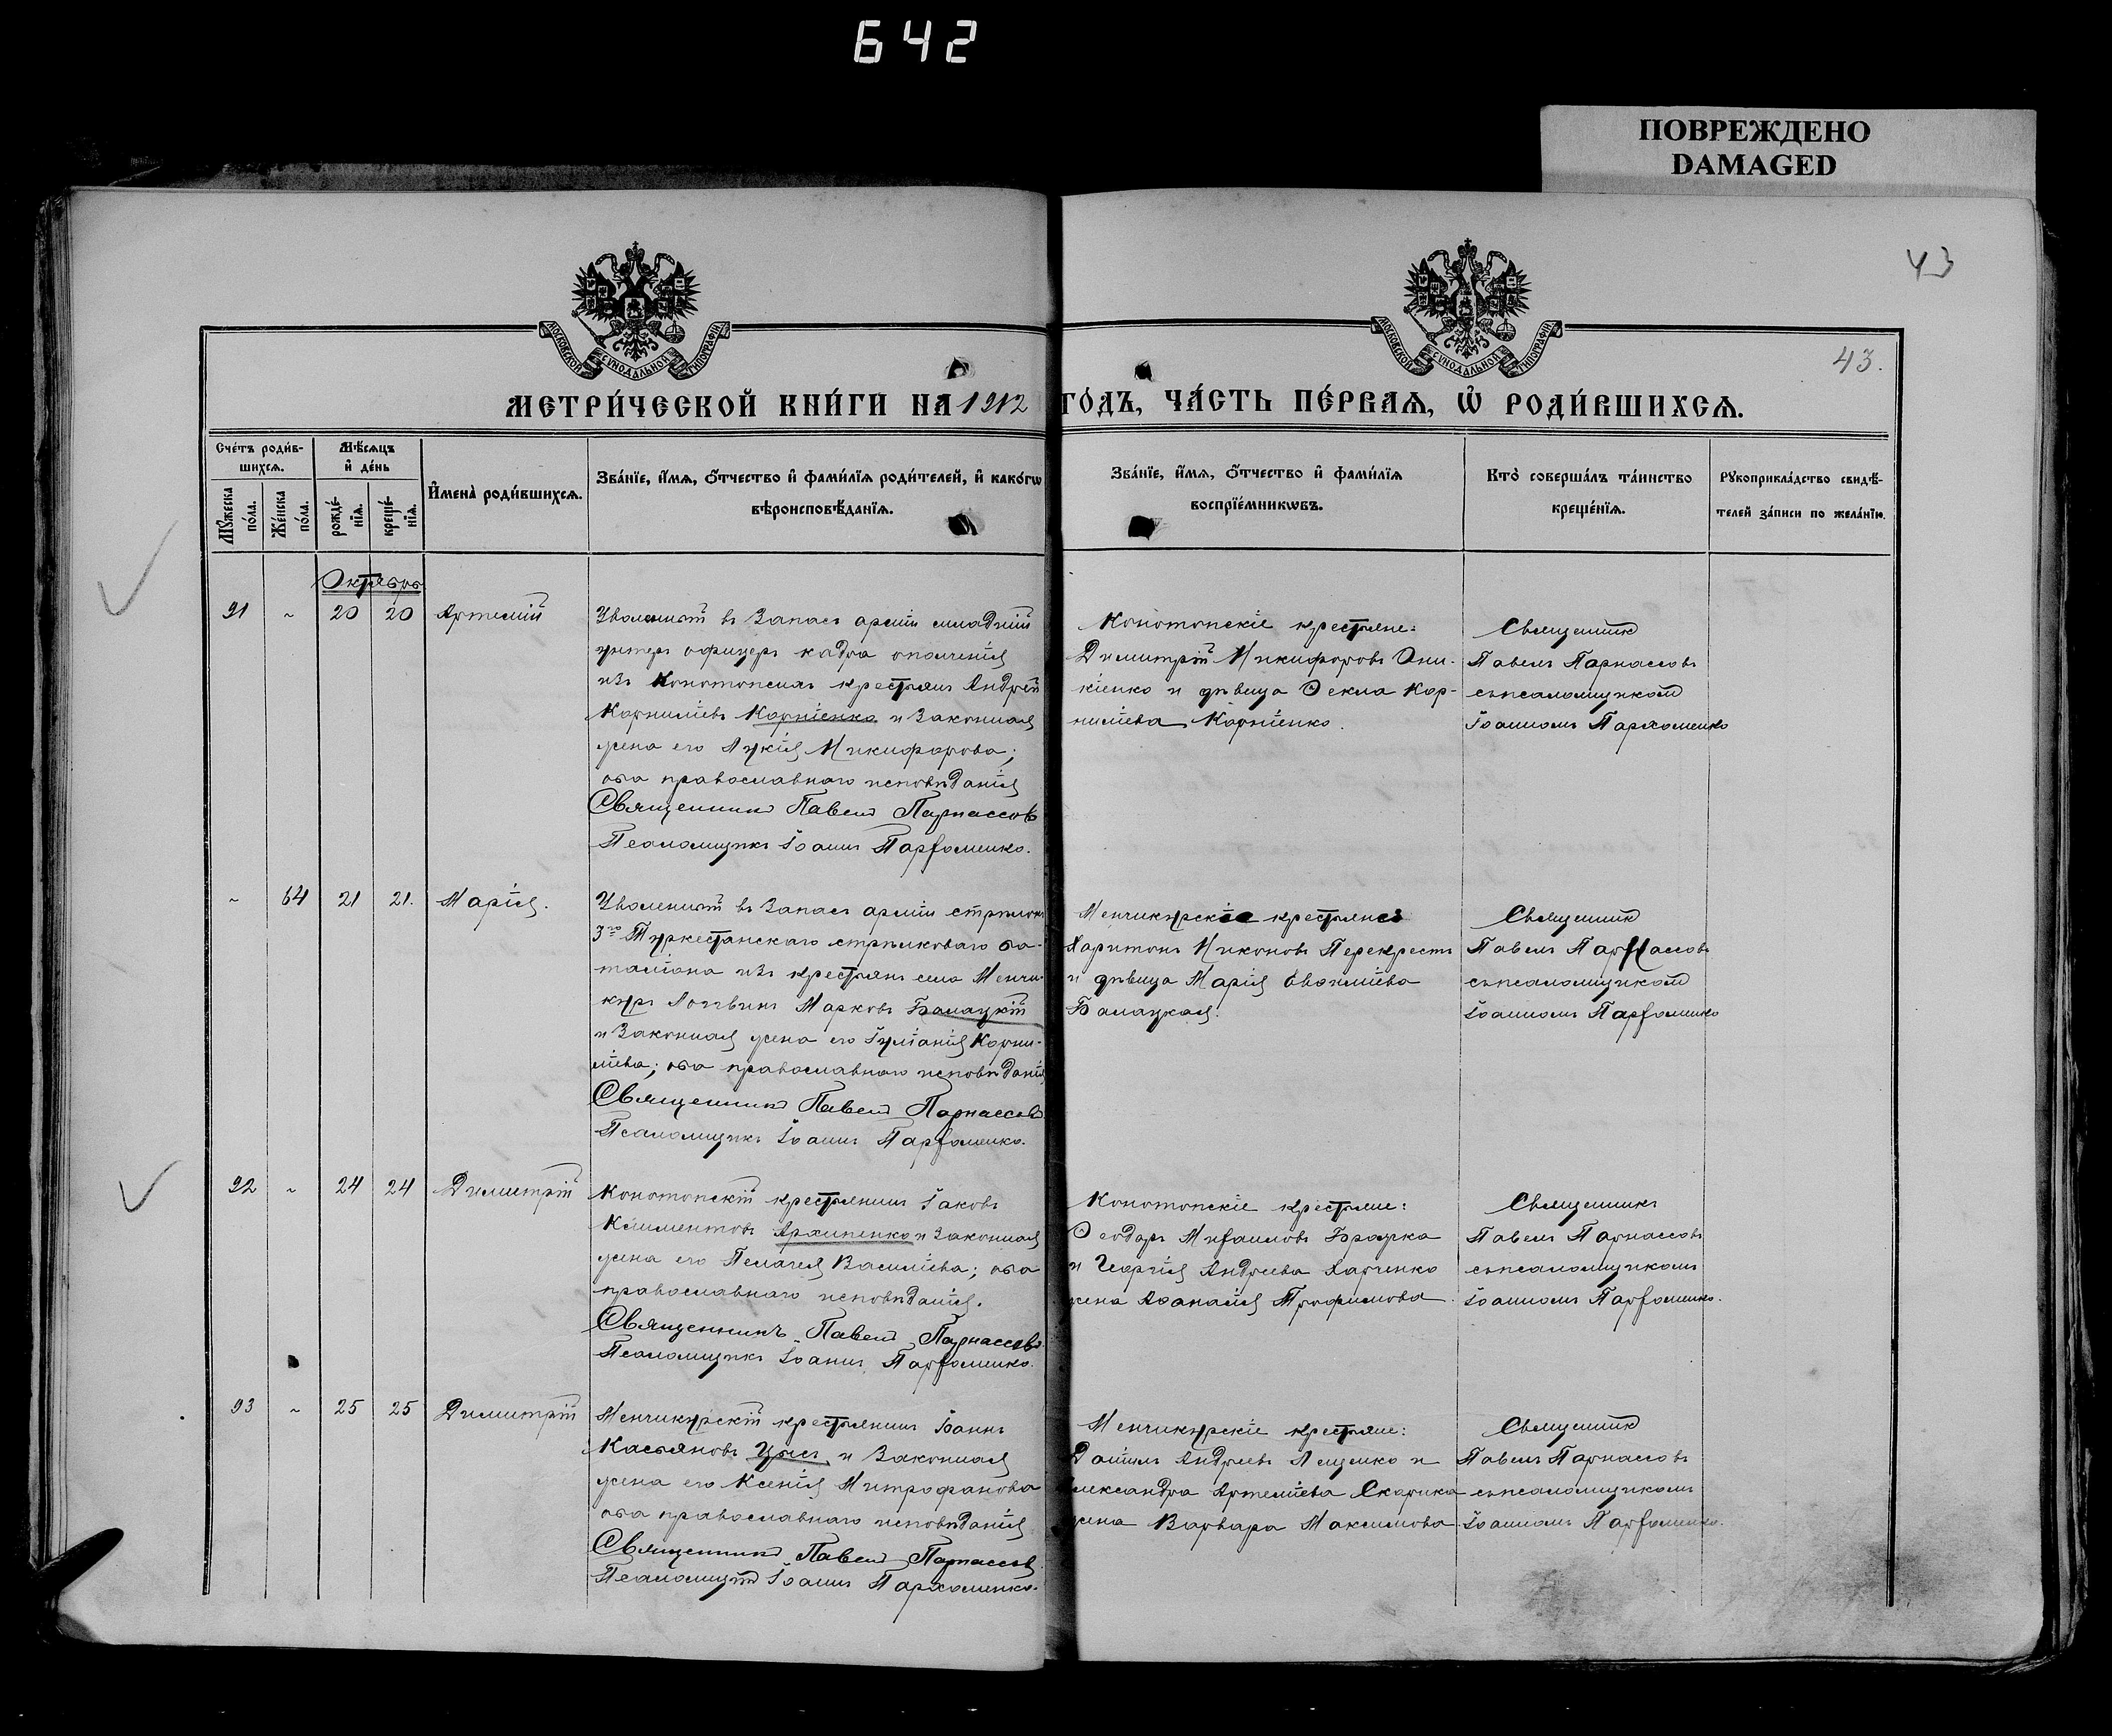 642
ПОВРЕЖДЕНО
DAMAGED
43
МОСКОВСКОЙ СѴНОДАЛЬНОЙ ТИПОГРАФІИ
МОСКОВСКОЙ СѴНОДАЛЬНОЙ ТИПОГРАФІИ
43.
МЕТРИ́ЧЕСКОЙ КНИ́ГИ НА 1912 ГО́ДЪ, ЧА́СТЬ ПЕ́РВАѦ, Ѡ҆ РОДИ́ВШИХСѦ.
Сче́тъ роди́в-
шихсѧ.
Мѣ́сѧцъ
и҆ де́нь
И҆мена̀ роди́вшихсѧ.
Зва́нїе, и҆́мѧ, ѻ҆́тчество и҆ фами́лїѧ роди́телей, и҆ како́гѡ
вѣроисповѣ́данїѧ.
Зва́нїе, и҆́мѧ, ѻ҆́тчество и҆ фами́лїѧ
воспрїе́мникѡвъ.
Кто̀ соверша́лъ та́инство
креще́нїѧ.
Рꙋкоприкла́дство свидѣ́-
телей за́писи по жела́нїю.
Мꙋ́жеска
по́ла.
Же́нска
по́ла.
рожде́-
нїѧ.
креще́-
нїѧ.
Октябрь
91 " 20 20 Артемій
Уволенный въ запасъ арміи младшій
унтеръ офицеръ кадра ополченія
изъ Конотопскихъ крестьянъ Андрей
Корниліевъ Корніенко и законная
жена его Лукія Никифорова;
оба православнаго исповѣданія
Священникъ Павелъ Парнассовъ
Псаломщикъ Іоаннъ Пархоменко.
Конотопскіе крестьяне:
Димитрій Никифоровъ Они-
кіенко и дѣвица Ѳекла Кор-
ниліева Корніенко.
Священникъ
Павелъ Парнассовъ
съ псаломщикомъ
Іоанномъ Пархоменко
" 64 21 21. Марія.
Уволенный въ запасъ арміи стрѣлокъ
3го Туркестанскаго стрѣлковаго ба-
таліона изъ крестьянъ села Менчи-
куръ Логвинъ Марковъ Балацкій
и законная жена его Іуліанія Корни-
ліева; оба православнаго исповѣданія
Священникъ Павелъ Парнассовъ
Псаломщикъ Іоаннъ Пархоменко.
Менчикурскіе крестьяне
Харитонъ Никоновъ Перекрестъ
и дѣвица Марія Евфиміева
Балацкая.
Священникъ
Павелъ Парнассовъ
съ псаломщикомъ
Іоанномъ Пархоменко
92 " 24 24 Димитрій
Конотопскій крестьянинъ Іаковъ
Климентовъ Архипенко и законная
жена его Пелагея Василіева; оба
православнаго исповѣданія.
Священникъ Павелъ Парнассовъ
Псаломщикъ Іоаннъ Пархоменко.
Конотопскіе крестьяне:
Ѳеодоръ Михаиловъ Бражка
и Георгія Андреева Харченко
жена Аѳанасія Трофимова
Священникъ
Павелъ Парнассовъ
съ псаломщикомъ
Іоанномъ Пархоменко.
93 " 25 25 Димитрій
Менчикурскій крестьянинъ Іоаннъ
Касьяновъ Цысь и законная
жена его Ксенія Митрофанова
оба православнаго исповѣданія
Священникъ Павелъ Парнассовъ
Псаломщикъ Іоаннъ Пархоменко.
Менчикурскіе крестьяне:
Даніилъ Андреевъ Лещенко и
Александра Артеміева Скорика
жена Варвара Максимова
Священникъ
Павелъ Парнассовъ
съ псаломщикомъ
Іоанномъ Пархоменко.